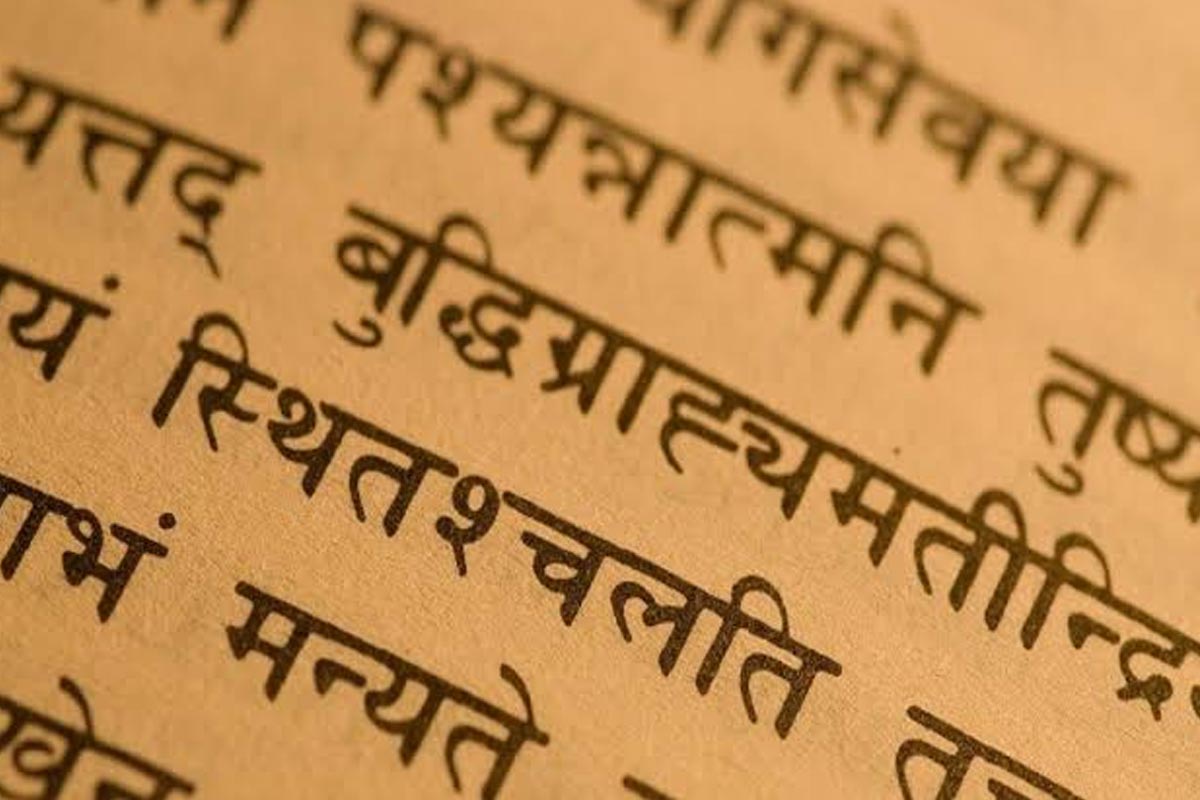 योगसेवया
पश्यन्नात्मनि तुष्य
यत्तद् बुद्धिग्राह्यमतीन्द्रि
यं स्थितश्चलति
भं मन्यते